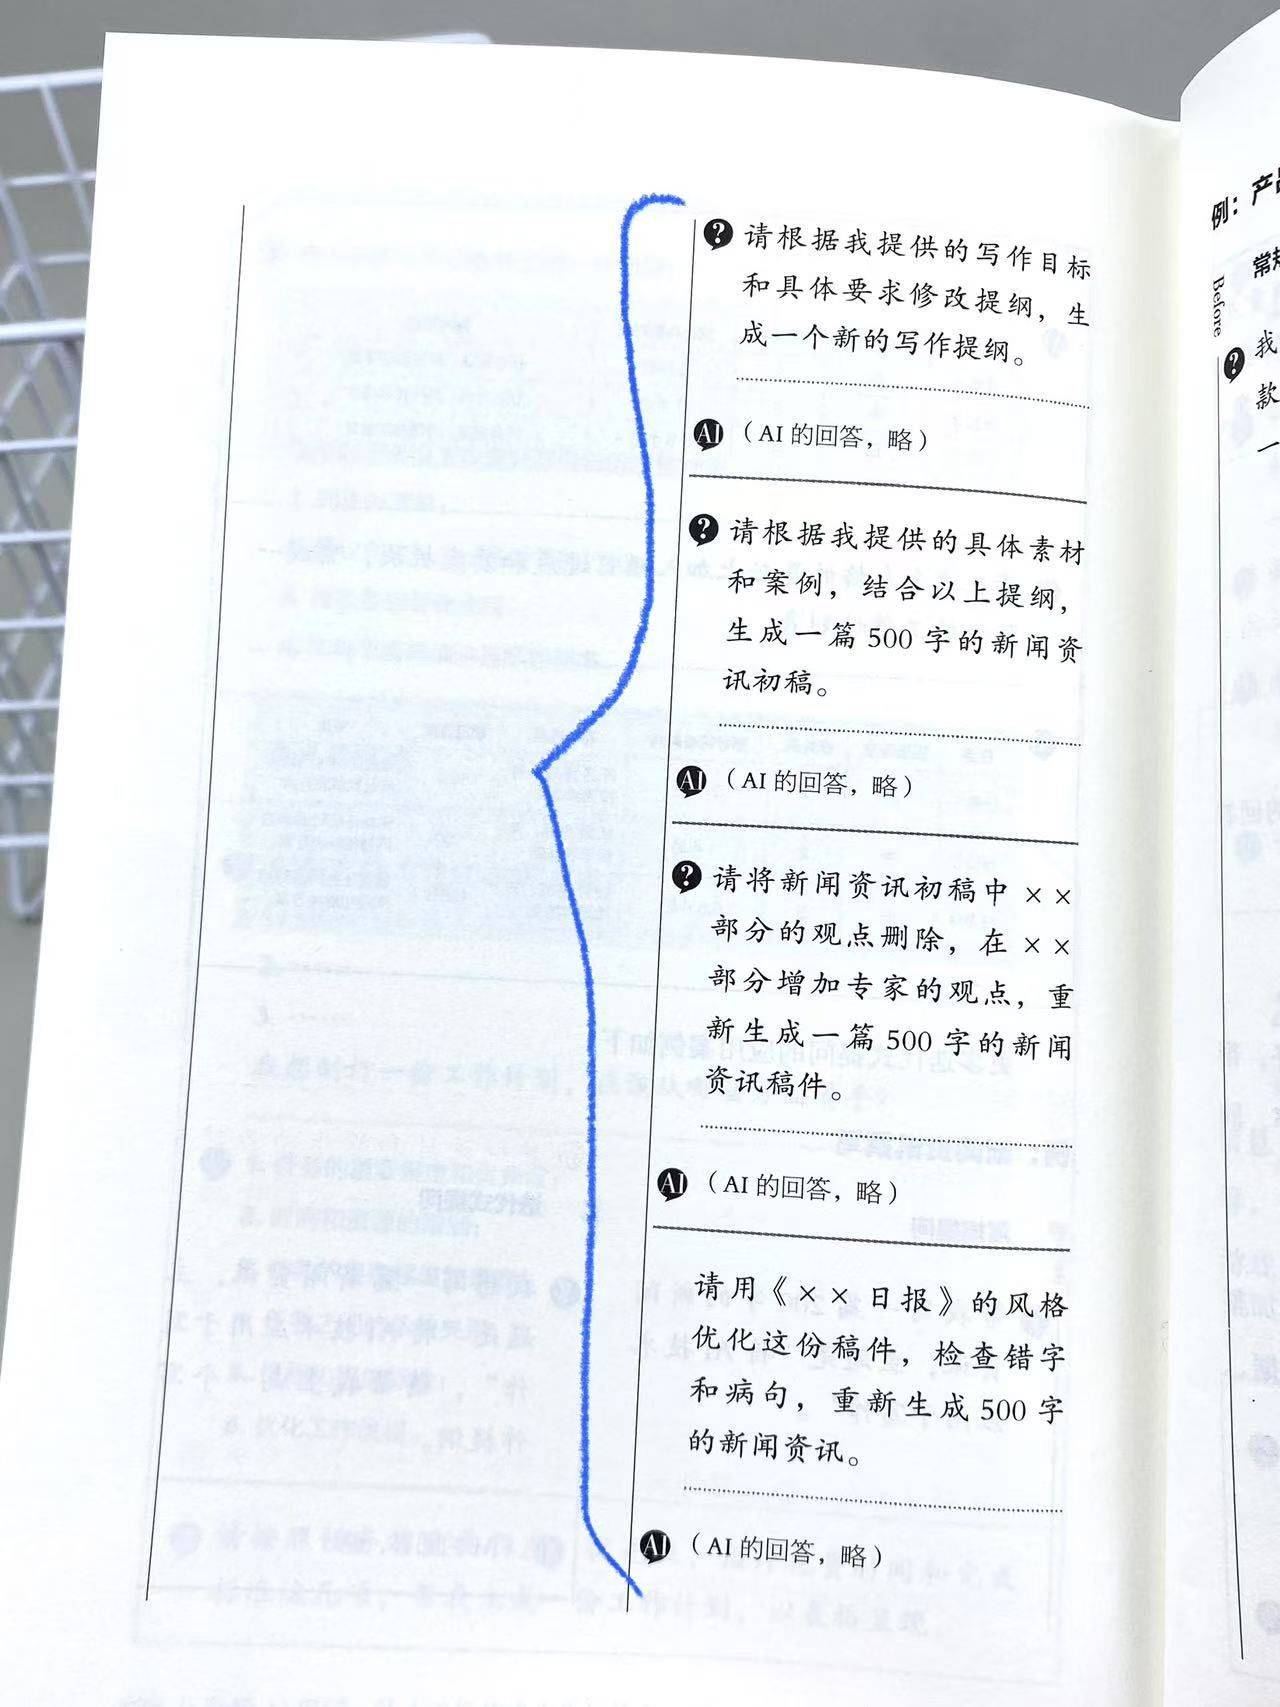 请根据我提供的写作目标
和具体要求修改提纲，生
成一个新的写作提纲。
AI（AI 的回答，略）
请根据我提供的具体素材
和案例，结合以上提纲，
生成一篇 500 字的新闻资
讯初稿。
AI（AI 的回答，略）
请将新闻资讯初稿中 ××
部分的观点删除，在 ××
部分增加专家的观点，重
新生成一篇 500 字的新闻
资讯稿件。
AI（AI 的回答，略）
请用《×× 日报》的风格
优化这份稿件，检查错字
和病句，重新生成 500 字
的新闻资讯。
AI（AI 的回答，略）
例：产品
常规
Before
我
款
一